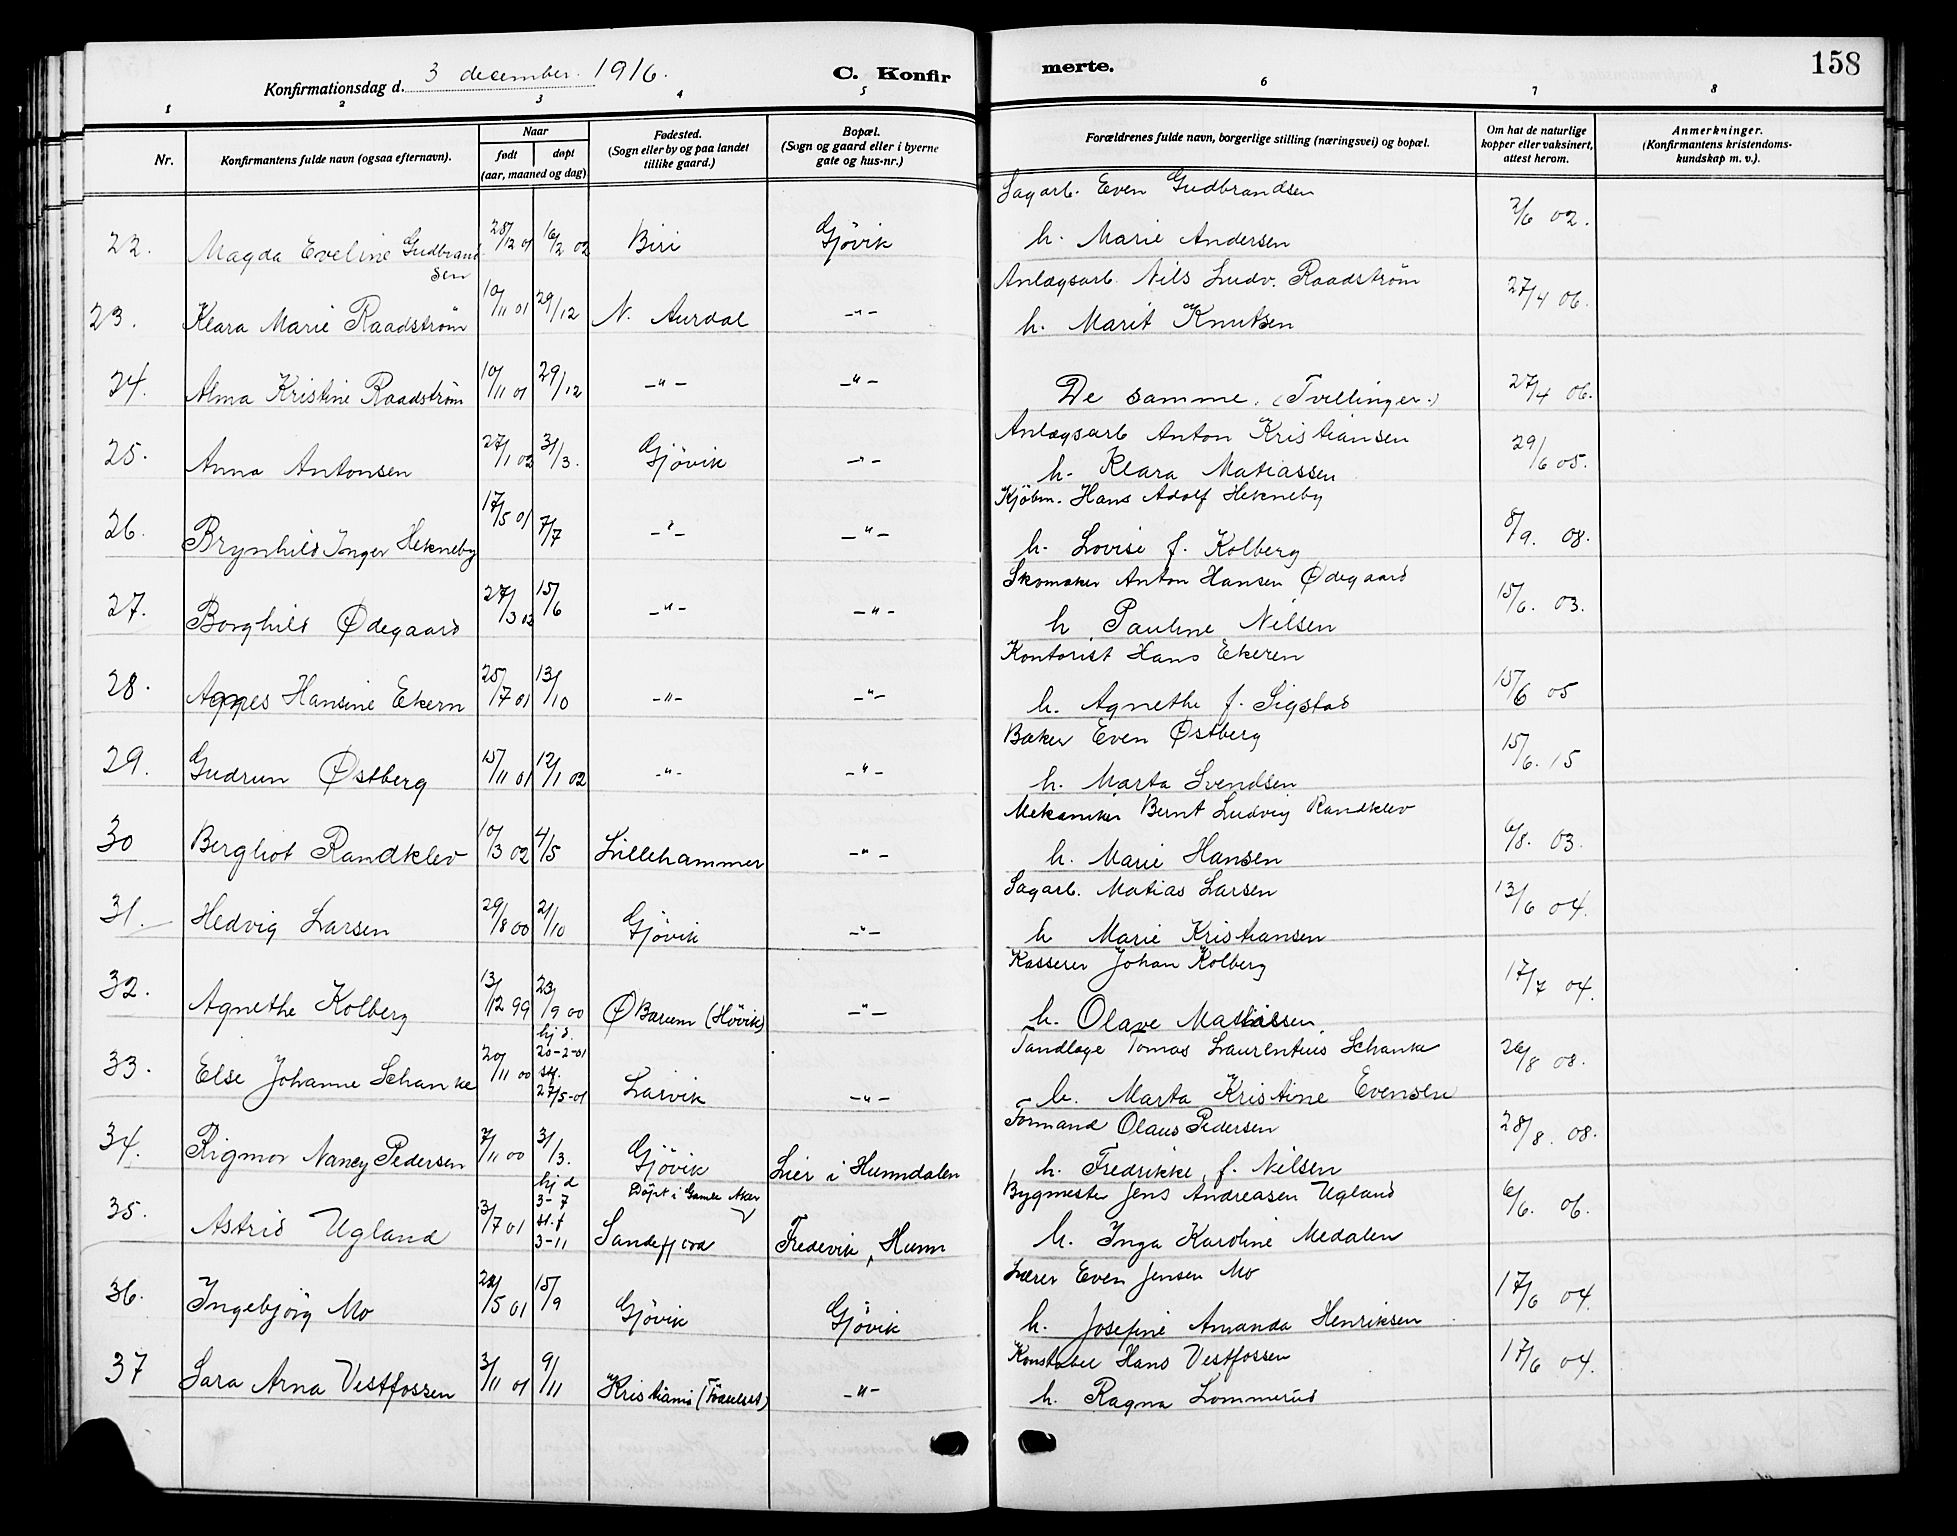 Konfirmationsdag d. 3 desember 1916. C. Konfirmerte. 158
1 2 3 4 5 6 7 8
Nr. Konfirmantens fulde navn (ogsaa efternavn). Naar født døpt (aar, maaned og dag) Fødested. (Sogn eller by og paa landet tillike gaard.) Bopæl. (Sogn og gaard eller i byerne gate og hus-nr.) Forældrenes fulde navn, borgerlige stilling (næringsvei) og bopæl. Om hat de naturlige kopper eller vaksinert, attest herom. Anmerkninger. (Konfirmantens kristendomskundskap m. v.).
Sagarb. Even Gudbrandsen
22. Magda Eveline Gudbrandsen 28/12 01 16/2 02 Biri Gjøvik h. Marie Andersen 2/6 02.
Anlægsarb. Nils Ludv. Raadstrøm
23. Klara Marie Raadstrøm 10/11 01 29/12 N. Aurdal -"- h. Marit Knutsen 27/4 06.
24. Alma Kristine Raadstrøm 10/11 01 29/12 -"- -"- De samme. (Tvillinger.) 27/4 06.
Anlægsarb Anton Kristiansen
25. Anna Antonsen 27/1 02 31/3. Gjøvik -"- h. Klara Matiassen 29/6 05.
Kjøbm. Hans Adolf Hekneby
26. Brynhild Inger Hekneby 17/5 01 7/7 -"- -"- h. Lovise f. Kolberg 8/9. 08.
Skomaker Anton Hansen Ødegaard
27. Borghild Ødegaard 27/3 02 15/6 -"- -"- h Pauline Nilsen 15/6. 03.
Kontorist Hans Ekeren
28. Agnes Hansine Ekern 25/7 01 13/10 -"- -"- h. Agnethe f. Sigstad 15/6 05
Baker Even Østberg
29. Gudrun Østberg 15/11 01 12/1 02 -"- -"- h. Marta Svendsen 15/6. 15
Mekaniker Bernt Ludvig Randklev
30 Bergliot Randklev 10/3 02 4/5 Lillehammer -"- h. Marie Hansen 6/8. 03.
Sagarb. Matias Larsen
31. Hedvig Larsen 29/8 00 21/10 Gjøvik -"- h Marie Kristiansen 13/6 04.
Kasserer Johan Kolberg
32. Agnethe Kolberg 13/12 99 23/9 00 Ø Bærum (Høvik) -"- h. Olave Matiassen 17/7 04.
Tandlæge Tomas Laurentius Schanke
33. Else Johanne Schanke 20/11 00 hj d. 20-2-01 st. 27/5-01 Larvik -"- h. Marta Kristine Evensen 26/8 08.
Formand Olaus Pedersen
34. Rigmor Nancy Pedersen 7/11 00 31/3. Gjøvik Lier i Hunndalen h. Fredrikke f. Nilsen 28/8. 08.
Bygmester Jens Andreasen Ugland
35. Astrid Ugland 3/7 01 hj d 3-7 st. f 3-11 Døpt i Gamle Aker Sandefjord Fredevik, Hunn h. Inga Karoline Medalen 6/6. 06.
Lærer Even Jensen Mo
36. Ingebjørg Mo /5 01 15/9 Gjøvik Gjøvik h. Josefine Amanda Henriksen 17/6 04.
Konstabel Hans Vestfossen
37 Sara Arna Vestfossen 3/11 01 9/11 Kristiania -"- h. Ragna Lommerud 17/6 04.